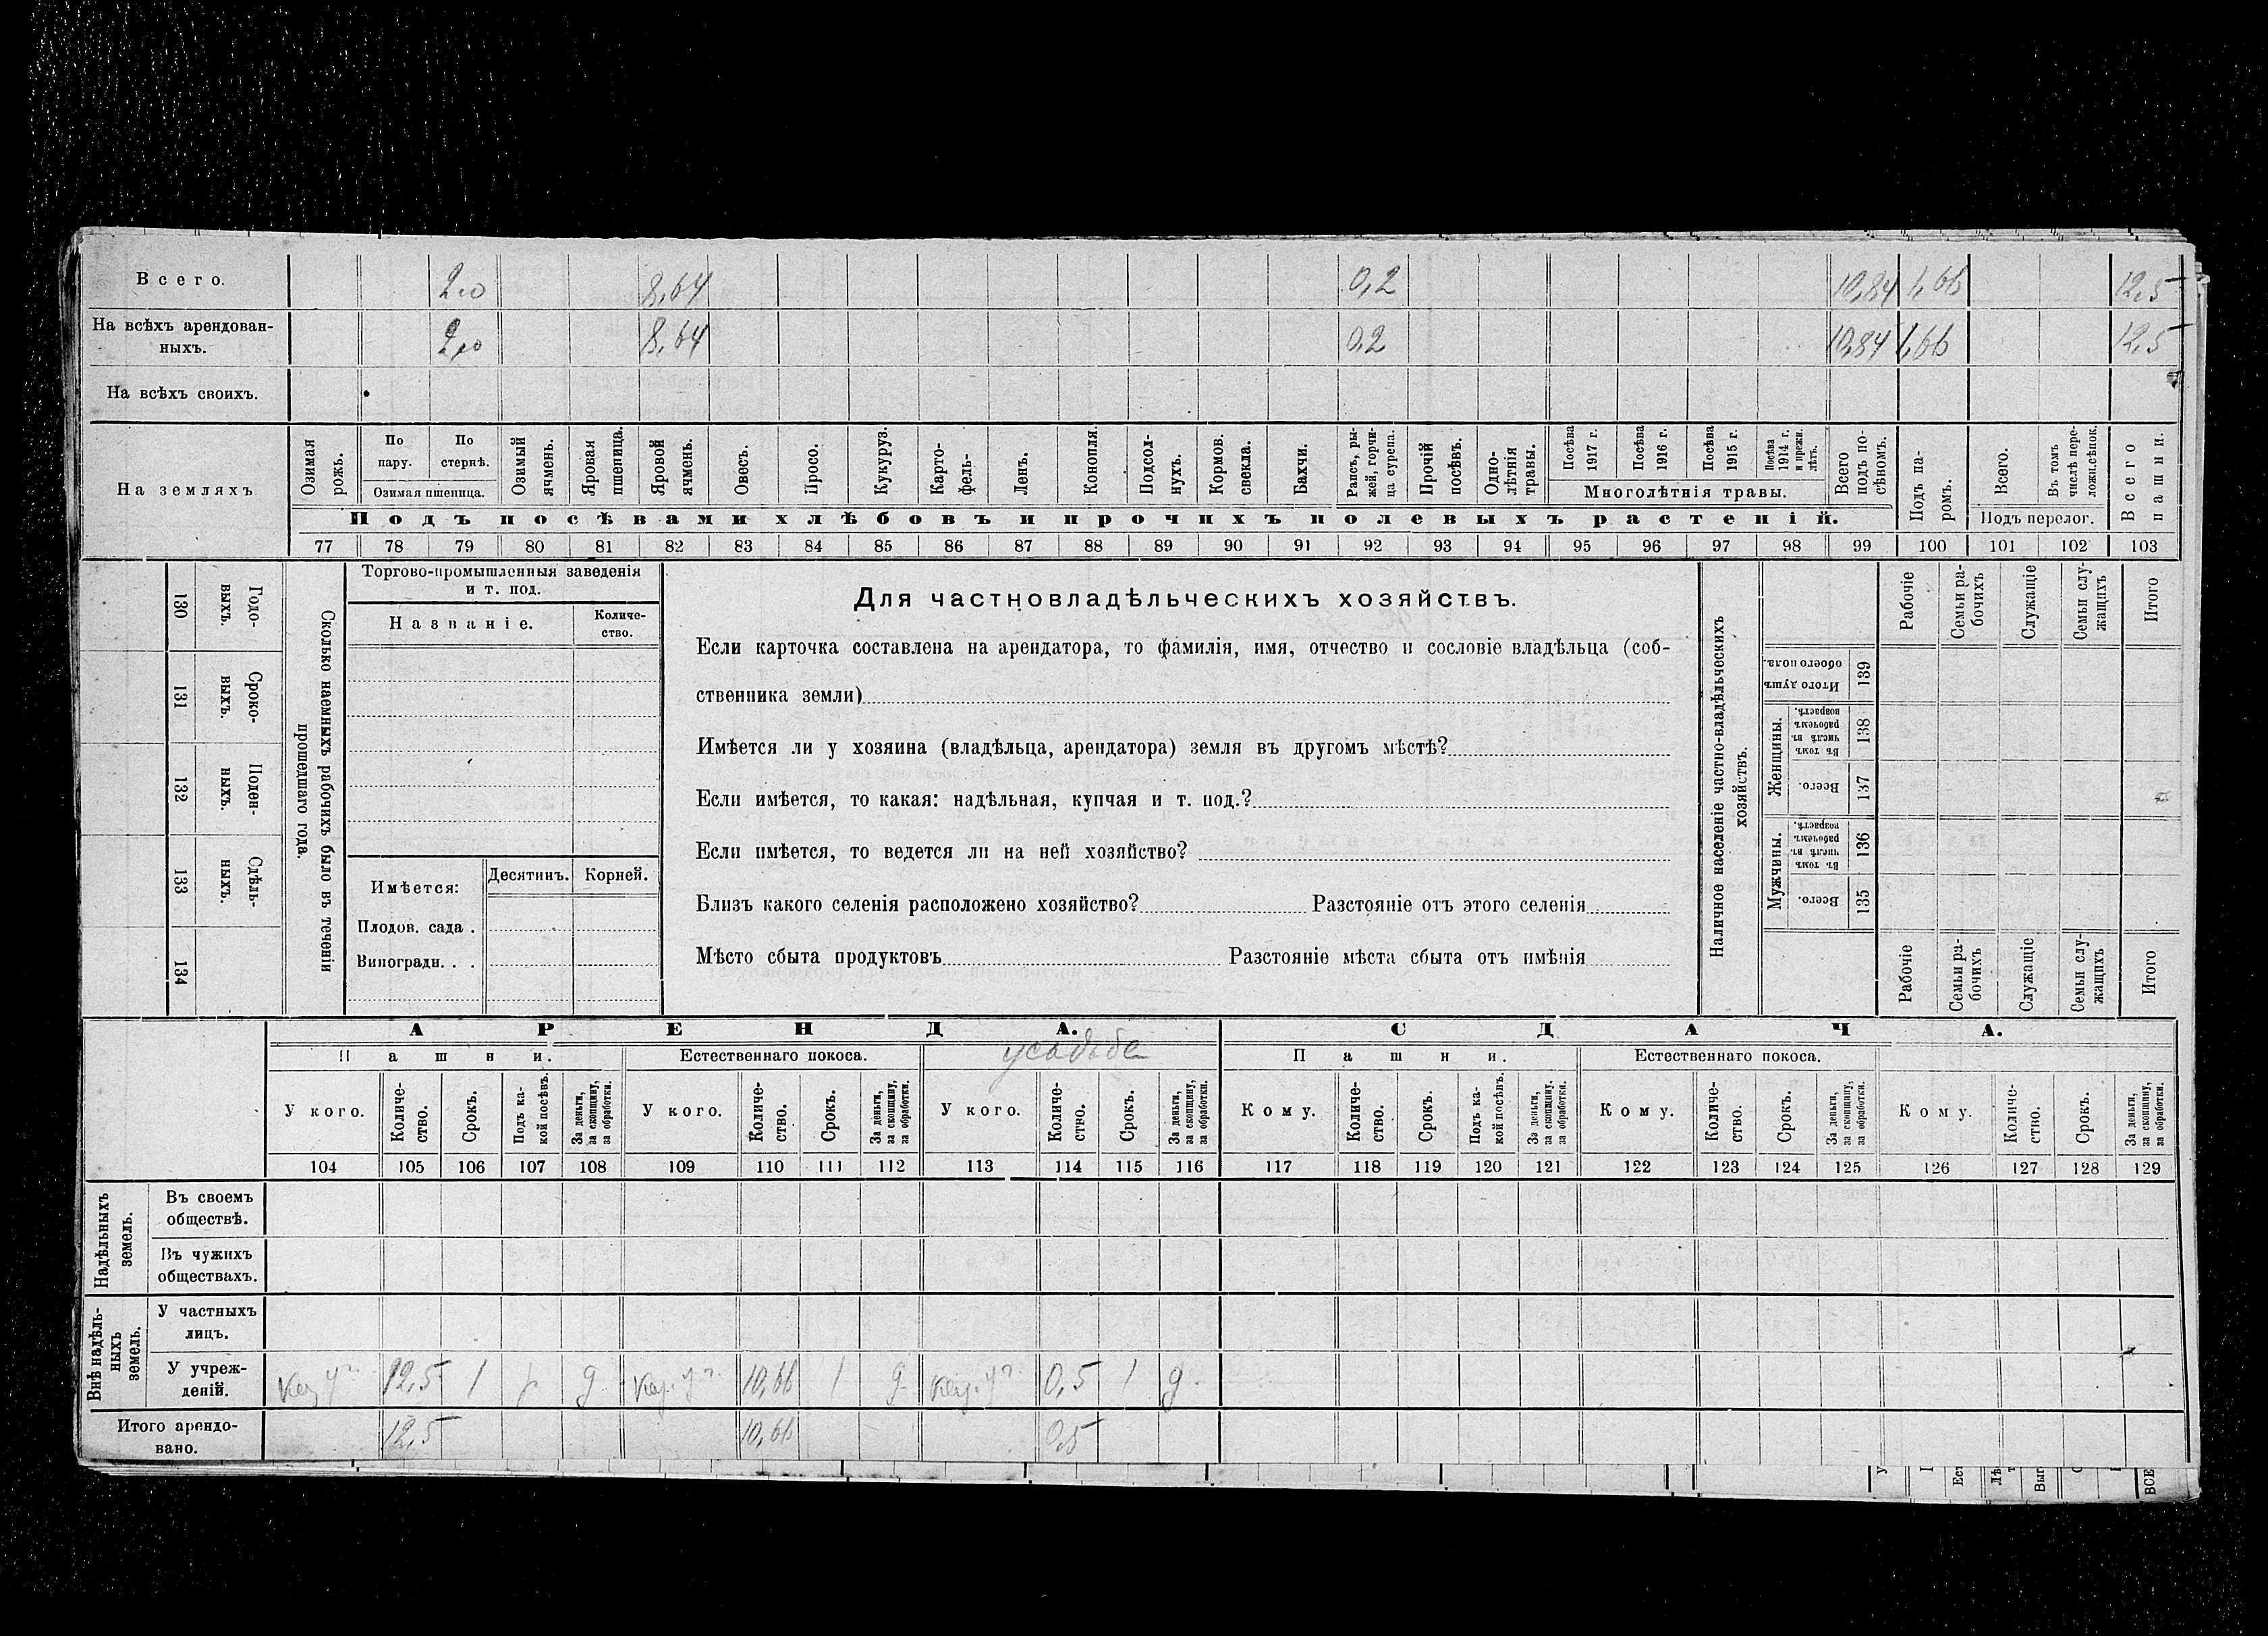 Всего. 2,0 8,64 0,2 10,84 1,66 12,5
На всѣхъ арендован-
ныхъ. 2,0 8,64 0,2 10,84 1,66 12,5
На всѣхъ своихъ.
На земляхъ
Озимая рожь.
По пару.
По стернѣ.
Озимая пшеница.
Озимый ячмень.
Яровая пшеница.
Яровой ячмень.
Овесъ.
Просо.
Кукуруз.
Карто-
фель-
Ленъ.
Конопля.
Подсол-
нухъ.
Кормов. свекла.
Бахчи.
Рапсъ, ры-
жей, горчи-
ца сурепа.
Прочій посѣвъ.
Одно-
лѣтнія травы.
Посѣва 1917 г.
Посѣва 1916 г.
Посѣва 1915 г.
Посѣва 1914 г. и прежн. лѣтъ.
Многолѣтнія травы.
Всего подъ по-
сѣвомъ.
Подъ па-
ромъ.
Всего.
Въ томъ числѣ пере-
ложн.сѣнок.
Подъ перелог.
Всего пашни.
Подъ посѣвами хлѣбовъ и прочихъ полевыхъ растеній.
77 78 79 80 81 82 83 84 85 86 87 88 89 90 91 92 93 94 95 96 97 98 99 100 101 102 103
130 Годо-
ныхъ.
131 Сроко-
ныхъ.
132 Поден-
ныхъ.
133 Сдѣль-
ныхъ.
134
Сколько наемныхъ рабочихъ было въ теченіи
прошедшаго года.
Торгово-промышленныя заведенія
и т. под.
Названіе. Количе-
ство.
Имѣется: Десятинъ. Корней.
Плодов. сада .
Виноградн. . .
Для частновладѣльческихъ хозяйствъ.
Если карточка составлена на арендатора, то фамилія, имя, отчество и сословіе владѣльца (соб-
ственника земли)
Имѣется ли у хозяина (владѣльца, арендатора) земля въ другомъ мѣстѣ?
Если имѣется, то какая: надѣльная, купчая и т. под.?
Если имѣется, то ведется ли на ней хозяйство?
Близъ какого селенія расположено хозяйство? Разстояніе отъ этого селенія
Мѣсто сбыта продуктовъ Разстояніе мѣста сбыта отъ имѣнія
Наличное населеніе частно-владѣльческихъ
хозяйствъ.
Рабочіе
Семьи ра-
бочихъ
Служащіе
Семьи слу-
жащихъ
Итого
Итого душъ обоего пола. 139
Женщины.
Въ томъ числѣ въ рабочемъ возрастѣ. 138
Всего. 137
Мужчины.
Въ томъ числѣ въ рабочемъ возрастѣ. 136
Всего. 135
Рабочіе
Семьи ра-
бочихъ
Служащіе
Семьи слу-
жащихъ
Итого
АРЕНДА. СДАЧА.
Пашни. Естественнаго покоса. усадьба Пашни. Естественнаго покоса.
У кого. Количе-
ство. Срокъ. Подъ ка-
кой посѣвъ. За деньги,
за скопщину,
за обработки.
У кого. Количе-
ство. Срокъ. За деньги,
за скопщину,
за обработки.
У кого. Количе-
ство. Срокъ. За деньги,
за скопщину,
за обработки.
Кому. Количе-
ство. Срокъ. Подъ ка-
кой посѣвъ. За деньги,
за скопщину,
за обработки.
Кому. Количе-
ство. Срокъ. За деньги,
за скопщину,
за обработки.
Кому. Количе-
ство. Срокъ. За деньги,
за скопщину,
за обработки.
104 105 106 107 108 109 110 111 112 113 114 115 116 117 118 119 120 121 122 123 124 125 126 127 128 129
Надѣльныхъ
земель.
Въ своемъ
обществѣ.
Въ чужихъ
обществахъ.
Внѣ надѣль-
ныхъ
земель.
У частныхъ
лицъ.
У учреж-
деній. 12,5 1 д 10,66 1 д 0,5 1 д.
Итого арендо-
вано. 12,5 10,66 0,5
ВСЕ